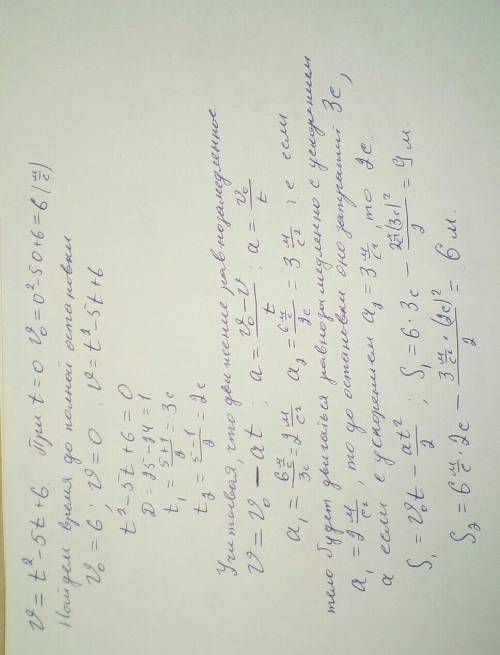 υ = t² - 5t + 6. При t = 0 υ₀ = 0² - 5·0 + 6 = 6 (м/с)
Найдем время до полной остановки
υ₀ = 6; υ = 0; υ = t² - 5t + 6
t² - 5t + 6 = 0
D = 25 - 24 = 1
t₁ = (5+1)/2 = 3с
t₂ = (5-1)/2 = 2с
Учитывая, что движение равнозамедленное
υ = υ₀ - at; a = (υ₀ - υ)/t; a = υ₀/t
a₁ = (6 м/с)/3с = 2 м/с² a₂ = (6 м/с)/2с = 3 м/с² т.е если
тело будет двигаться равнозамедленно с ускорением
a₁ = 2 м/с², то до остановки оно затратит 3с,
а если с ускорением a₂ = 3 м/с², то 2с.
S₁ = υ₀t - at²/2; S₁ = 6·3с - 2 м/с² (3с)²/2 = 9м.
S₂ = 6 м/с · 2с - 3 м/с² · (2с)²/2 = 6м.